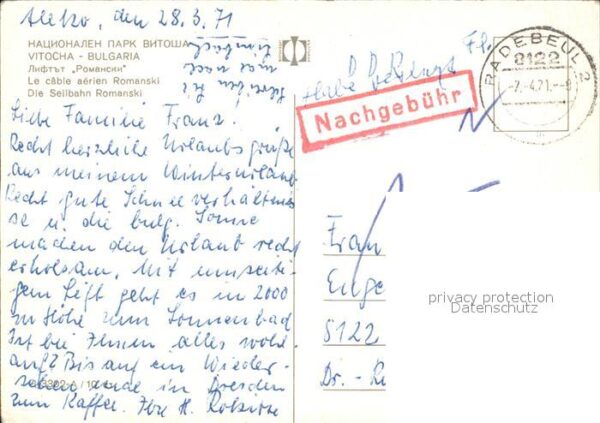 Aleko, den 28.3.71
НАЦИОНАЛЕН ПАРК ВИТОША
VITOCHA - BULGARIA
Лифтът „Романски“
Le câble aérien Romanski
Die Seilbahn Romanski
Liebe Familie Franz.
Recht herzliche Urlaubsgrüße
aus meinem Winterurlaub
Recht gute Schneeverhältnis
se u. die bulg. Sonne
machen den Urlaub recht
erholsam. Mit
gem Lift geht es in 2000
m Höhe zum Sonnenbad
Ist bei Ihnen alles wohl
auf? Bis auf ein Wieder-
sehen in Dresden
zum Kaffee. Ihre H.
Habe
Nachgebühr
RADEBEUL 2
8122
-7.-4.71.-8
Fran
Enge
5122
Dr. - Re
privacy protection
Datenschutz